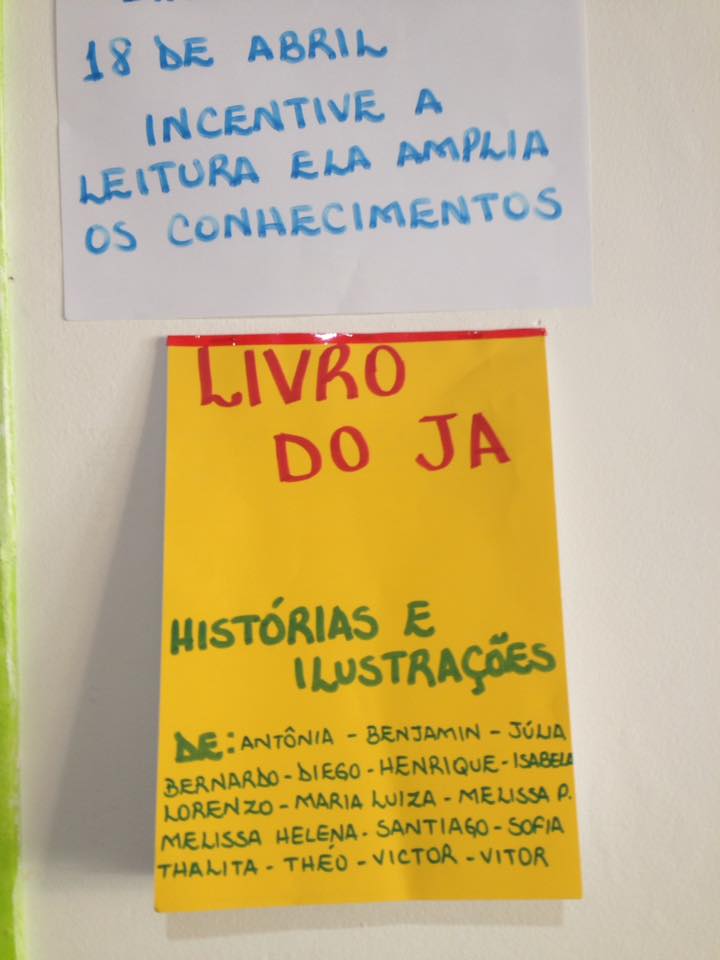 18 DE ABRIL
INCENTIVE A
LEITURA ELA AMPLIA
OS CONHECIMENTOS
LIVRO
DO JA
HISTÓRIAS E
ILUSTRAÇÕES
DE: ANTÔNIA - BENJAMIN - JÚLIA
BERNARDO - DIEGO - HENRIQUE - ISABELA
LORENZO - MARIA LUIZA - MELISSA P.
MELISSA HELENA - SANTIAGO - SOFIA
THALITA - THÉO - VICTOR - VITOR